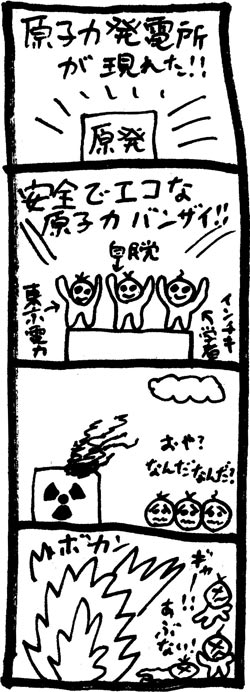 原子力発電所
が現れた!!
原発
安全でエコな
原子力バンザイ!!
自民党
東京電力
インチキ
学者
おや?
なんだなんだ?
ボカン
ギャー!!
あぶない!